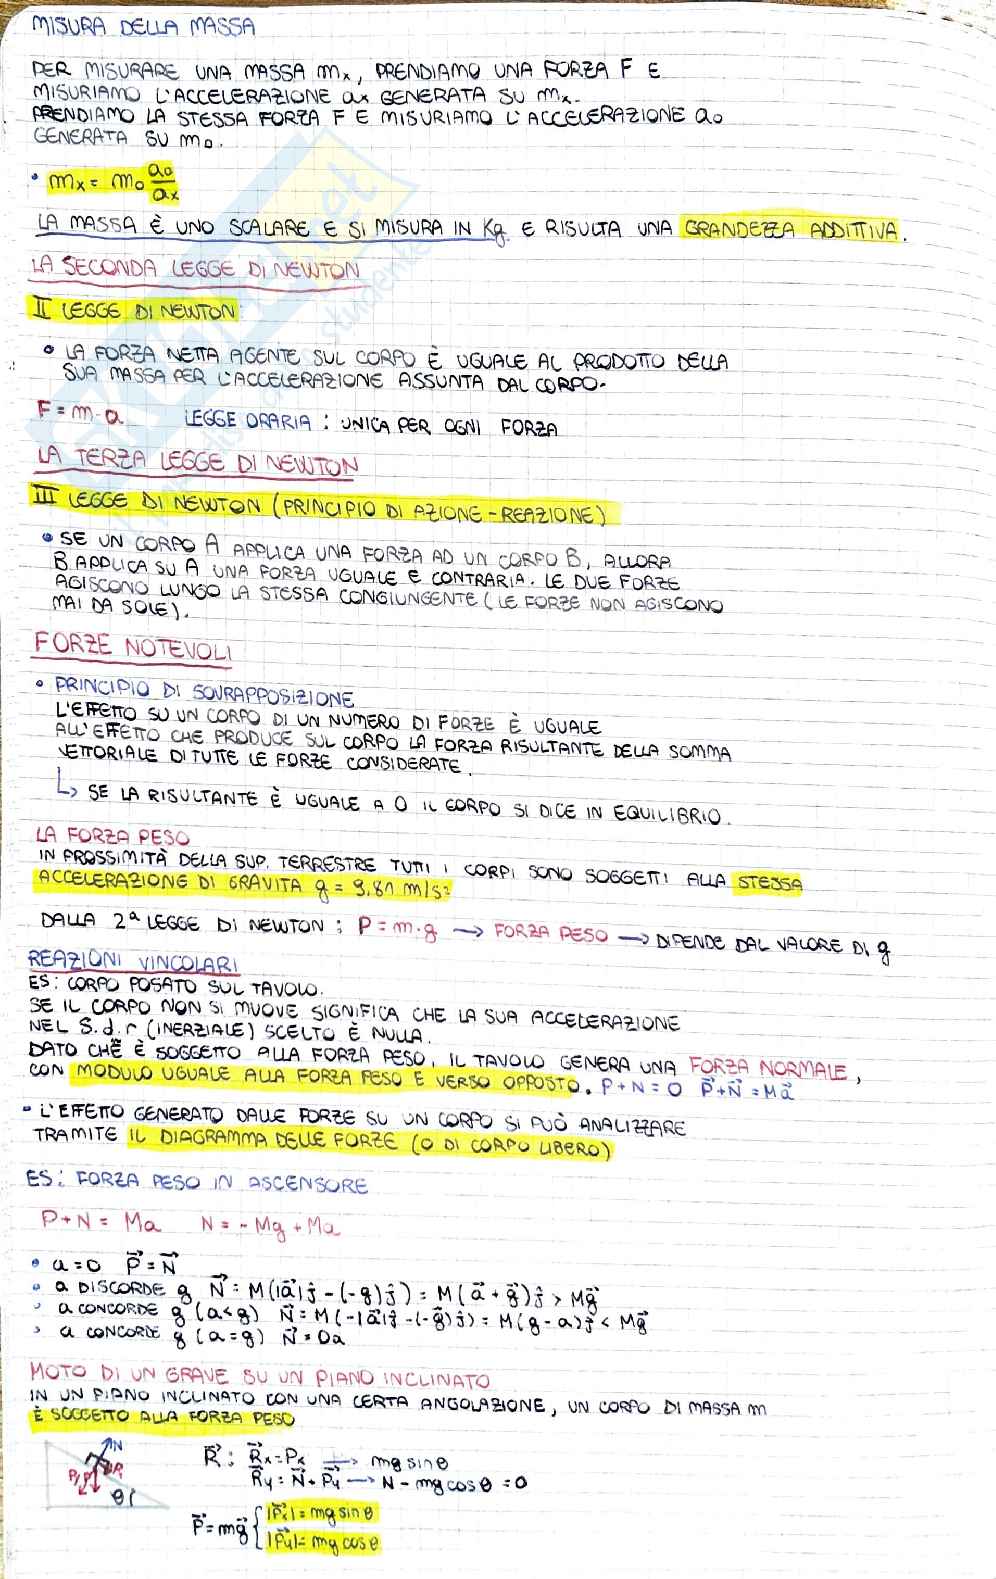 MISURA DELLA MASSA
PER MISURARE UNA MASSA mx, PRENDIAMO UNA FORZA F E
MISURIAMO L'ACCELERAZIONE ax GENERATA SU mx.
PRENDIAMO LA STESSA FORZA F E MISURIAMO L'ACCELERAZIONE a0
GENERATA SU m0.
• mx = m0 a0/ax
LA MASSA È UNO SCALARE E SI MISURA IN Kg. E RISULTA UNA GRANDEZZA ADDITTIVA.
LA SECONDA LEGGE DI NEWTON
II LEGGE DI NEWTON:
• LA FORZA NETTA AGENTE SUL CORPO È UGUALE AL PRODOTTO DELLA
SUA MASSA PER L'ACCELERAZIONE ASSUNTA DAL CORPO.
F = m·a LEGGE ORARIA : UNICA PER OGNI FORZA
LA TERZA LEGGE DI NEWTON
III LEGGE DI NEWTON (PRINCIPIO DI AZIONE-REAZIONE)
• SE UN CORPO A APPLICA UNA FORZA AD UN CORPO B, ALLORA
B APPLICA SU A UNA FORZA UGUALE E CONTRARIA. LE DUE FORZE
AGISCONO LUNGO LA STESSA CONGIUNGENTE (LE FORZE NON AGISCONO
MAI DA SOLE).
FORZE NOTEVOLI
• PRINCIPIO DI SOVRAPPOSIZIONE
L'EFFETTO SU UN CORPO DI UN NUMERO DI FORZE È UGUALE
ALL'EFFETTO CHE PRODUCE SUL CORPO LA FORZA RISULTANTE DELLA SOMMA
VETTORIALE DI TUTTE LE FORZE CONSIDERATE.
↳ SE LA RISULTANTE È UGUALE A 0 IL CORPO SI DICE IN EQUILIBRIO.
LA FORZA PESO
IN PROSSIMITÀ DELLA SUP. TERRESTRE TUTTI I CORPI SONO SOGGETTI ALLA STESSA
ACCELERAZIONE DI GRAVITÀ g = 9.81 m/s²
DALLA 2ª LEGGE DI NEWTON : P = m·g → FORZA PESO → DIPENDE DAL VALORE DI g
REAZIONI VINCOLARI
ES: CORPO POSATO SUL TAVOLO.
SE IL CORPO NON SI MUOVE SIGNIFICA CHE LA SUA ACCELERAZIONE
NEL S.d.r (INERZIALE) SCELTO È NULLA.
DATO CHE È SOGGETTO ALLA FORZA PESO, IL TAVOLO GENERA UNA FORZA NORMALE,
CON MODULO UGUALE ALLA FORZA PESO E VERSO OPPOSTO. P+N=0 P⃗+N⃗=Ma⃗
• L'EFFETTO GENERATO DALLE FORZE SU UN CORPO SI PUÒ ANALIZZARE
TRAMITE IL DIAGRAMMA DELLE FORZE (O DI CORPO LIBERO)
ES: FORZA PESO IN ASCENSORE
P+N = Ma N = -Mg+Ma
• a=0 P⃗=N⃗
• a DISCORDE g N⃗=M(|a⃗|ĵ-(-g)ĵ) = M(a⃗+g⃗)ĵ > Mg⃗
• a CONCORDE g (a<g) N⃗=M(-|a⃗|ĵ-(-g⃗)ĵ) = M(g-a)ĵ < Mg⃗
• a CONCORDE g (a=g) N⃗=0a
MOTO DI UN GRAVE SU UN PIANO INCLINATO
IN UN PIANO INCLINATO CON UNA CERTA ANGOLAZIONE, UN CORPO DI MASSA m
È SOGGETTO ALLA FORZA PESO
N
R
θ
R⃗ : R⃗x = Px → mg sin θ
R⃗y = N⃗+P⃗y → N - mg cos θ = 0
P⃗=mg⃗ { |P⃗x| = mg sin θ
|P⃗y| = mg cos θ